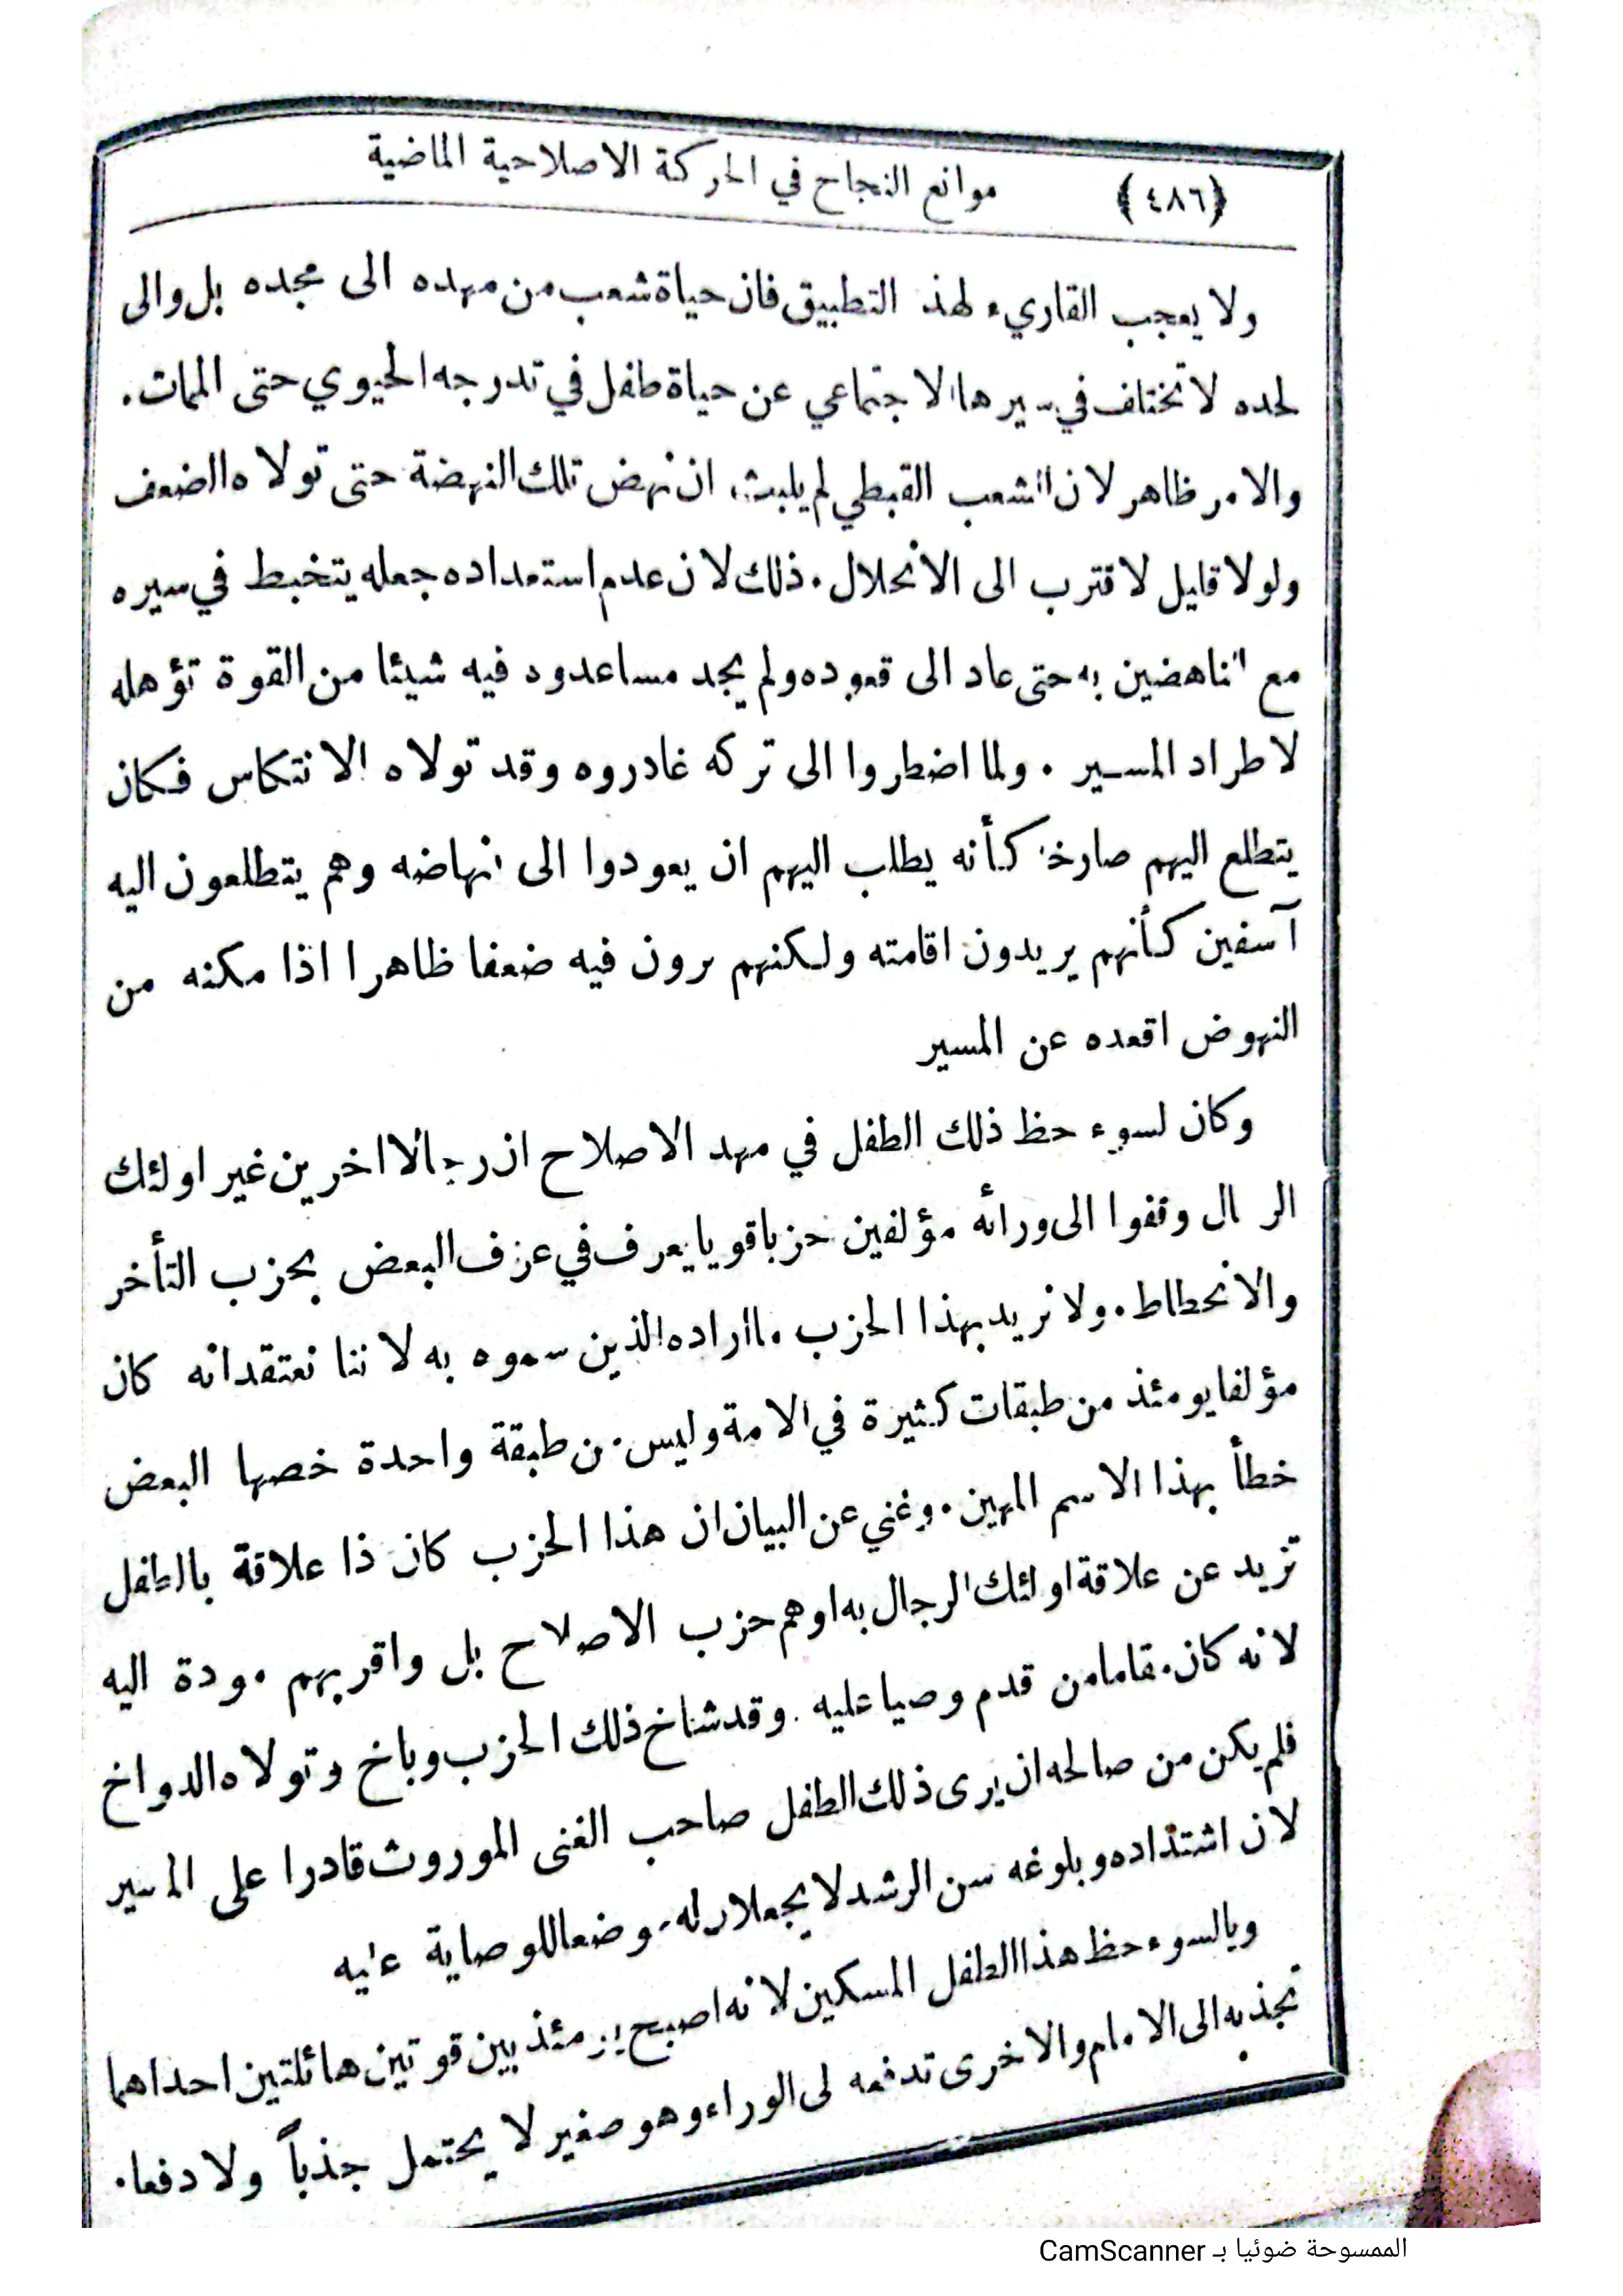 ﴿٤٨٦﴾ موانع النجاح في الحركة الاصلاحية الماضية
ولا يعجب القاريء لهذ التطبيق فان حياة شعب من مهده الى مجده بل والى
لحده لا تختلف في سيرها الاجتماعي عن حياة طفل في تدرجه الحيوي حتى الممات.
والامر ظاهر لان الشعب القبطي لم يلبث ان نهض تلك النهضة حتى تولاه الضعف
ولولا قليل لاقترب الى الانحلال. ذلك لان عدم استعداده جعله يتخبط في سيره
مع الناهضين به حتى عاد الى قعوده ولم يجد مساعدوه فيه شيئا من القوة تؤهله
لاطراد المسير . ولما اضطروا الى تركه غادروه وقد تولاه الانتكاس فكان
يتطلع اليهم صارخا كأنه يطلب اليهم ان يعودوا الى انهاضه وهم يتطلعون اليه
آسفين كأنهم يريدون اقامته ولكنهم يرون فيه ضعفا ظاهرا اذا مكنه من
النهوض اقعده عن المسير
وكان لسوء حظ ذلك الطفل في مهد الاصلاح ان رجالا اخرين غير اولئك
الرجال وقفوا الى ورائه مؤلفين حزبا قويا يعرف في عرف البعض بحزب التأخر
والانحطاط. ولا نريد بهذا الحزب ما اراده الذين سموه به لاننا نعتقد انه كان
مؤلفا يومئذ من طبقات كثيرة في الامة وليس من طبقة واحدة خصها البعض
خطأ بهذا الاسم المهين. وغني عن البيان ان هذا الحزب كان ذا علاقة بالطفل
تزيد عن علاقة اولئك الرجال به اوهم حزب الاصلاح بل واقربهم مودة اليه
لانه كان مقاما من قدم وصيا عليه . وقد شاخ ذلك الحزب وباخ وتولاه الدواخ
فلم يكن من صالحه ان يرى ذلك الطفل صاحب الغنى الموروث قادرا على المسير
لان اشتداده وبلوغه سن الرشد لا يجعلان له موضعا للوصاية عليه
ويالسوء حظ هذا الطفل المسكين لانه اصبح يومئذ بين قوتين هائلتين احداهما
تجذبه الى الامام والاخرى تدفعه الى الوراء وهو صغير لا يحتمل جذباً ولا دفعا.
الممسوحة ضوئيا بـ CamScanner